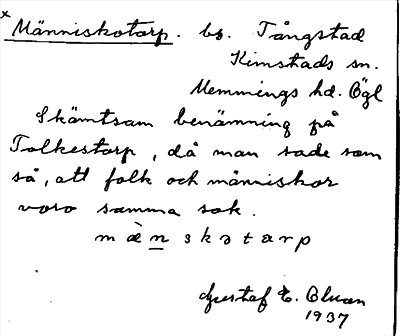 x Människotorp. bs. Tångstad
Kimstads sn.
Memmings hd. Ögl
Skämtsam benämning på
Tolkestorp, då man sade som
så, att folk och människor
voro samma sak.
mæ̀nskətɔrp
Gustaf E. Olsson
1937